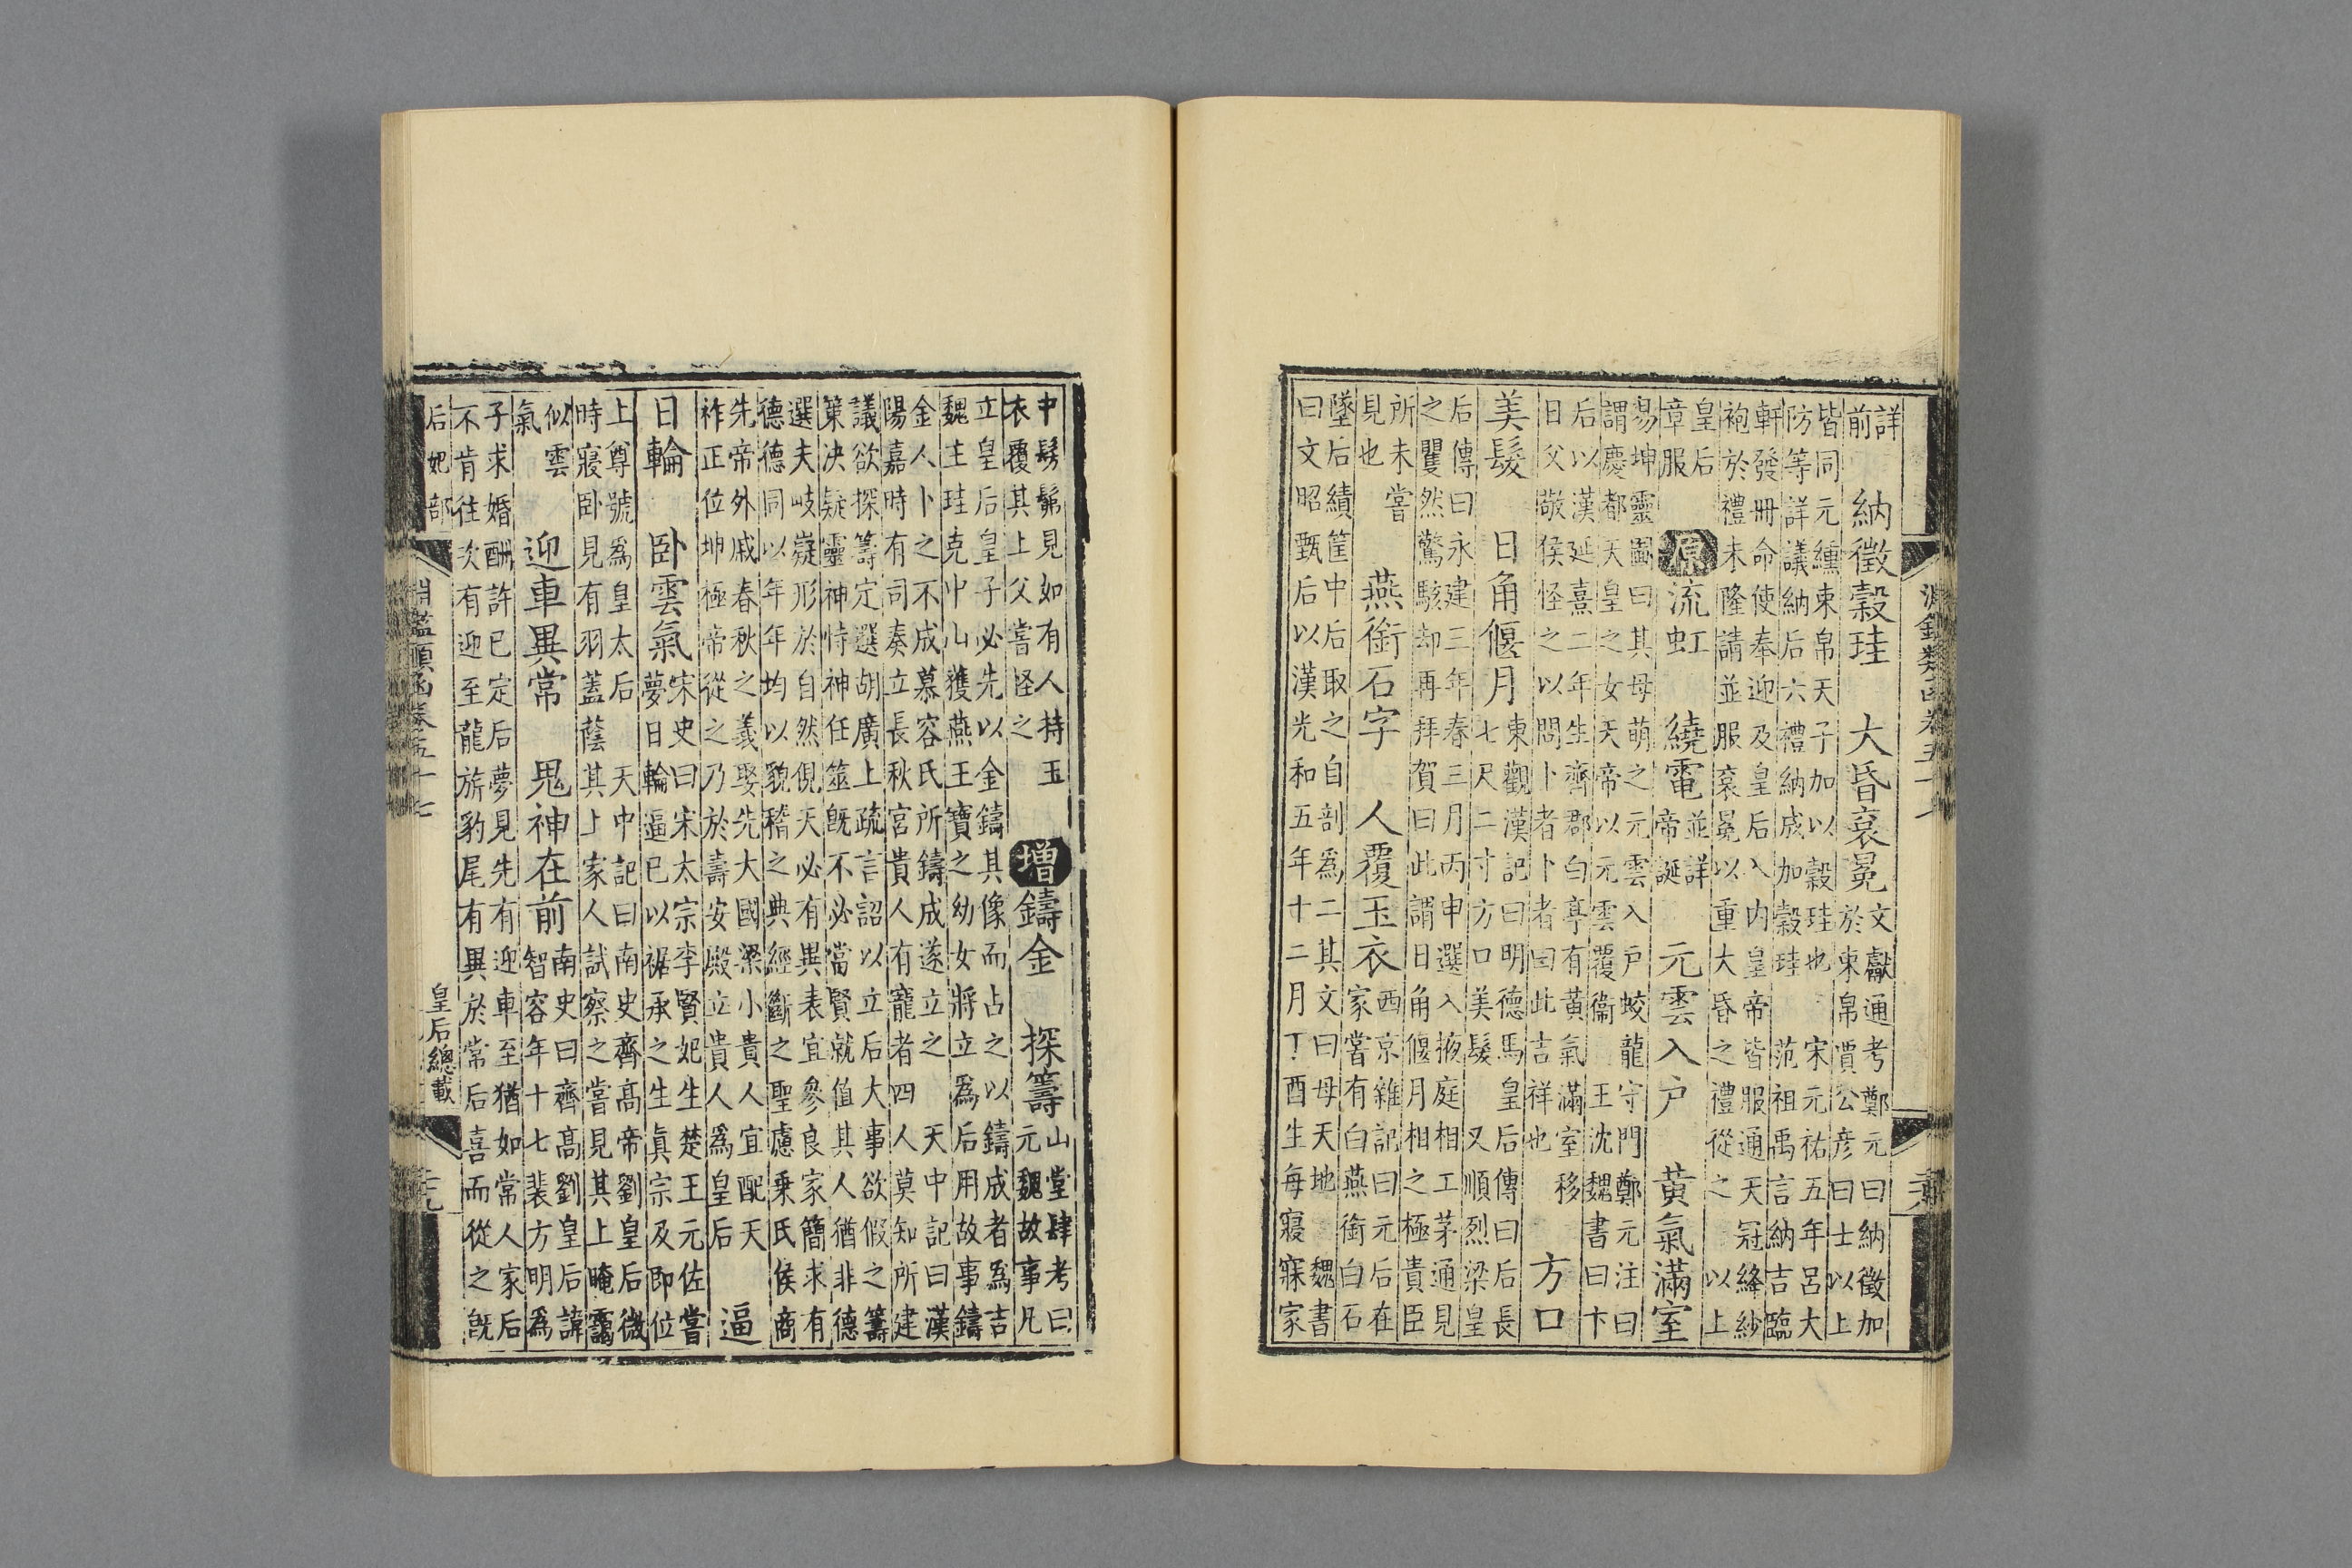 詳前　納徵穀珪　大昏袞冕　文獻通考鄭元曰納徵加
於束帛賈公彥曰士以上
皆同元纁束帛天子加以穀珪也　宋元祐五年呂大
防等詳議納后六禮納成加穀珪　范祖禹言納吉臨
軒發冊命使奉迎及皇后入内皇帝皆服通天冠絳紗
袍於禮未隆請並服袞冕以重大昏之禮從之　以上
皇后章服　原　流虹　繞電　並詳帝誕　元雲入户　黃氣滿室
易坤靈圖曰其母萌之元雲入戶蛟龍守門鄭元注曰
謂慶都天皇之女天帝以元雲覆衞　王沈魏書曰卞
后以漢延熹二年生齊郡白亭有黃氣滿室移
日父敬侯怪之以問卜者卜者曰此吉祥也　方口
美髮　日角偃月　東觀漢記曰明德馬皇后傳曰后長
七尺二寸方口美髮　又順烈梁皇
后傳曰永建三年春三月丙申選入掖庭相工茅通見
之矍然驚駭却再拜賀曰此謂日角偃月相之極貴臣
所未嘗見也　燕銜石字　人覆玉衣　西京雜記曰元后在
家嘗有白燕銜白石
墜后績筐中后取之自剖爲二其文曰母天地　魏書
曰文昭甄后以漢光和五年十二月丁酉生每寢寐家
中髣髴見如有人持玉
衣覆其上父嘗怪之　增　鑄金　探籌　山堂肆考曰
元魏故事凡
立皇后皇子必先以金鑄其像而占之以鑄成者爲吉
魏主珪克中山獲燕王寶之幼女將立爲后用故事鑄
金人卜之不成慕容氏所鑄成遂立之　天中記曰漢
陽嘉時有司奏立長秋宮貴人有寵者四人莫知所建
議欲探籌定選胡廣上疏言詔以立后大事欲假之籌
策决疑靈神恃神任筮旣不必當賢就值其人猶非德
選夫岐嶷形於自然俔天必有異表宜參良家簡求有
德德同以年年均以貌稽之典經斷之聖慮乗氏侯商
先帝外戚春秋之義娶先大國梁小貴人宜配天
祚正位坤極帝從之乃於壽安殿立貴人爲皇后　逼
日輪　卧雲氣　宋史曰宋太宗李賢妃生楚王元佐嘗
夢日輪逼己以裾承之生真宗及即位
上尊號爲皇太后　天中記曰南史齊高帝劉皇后微
時寢卧見有羽蓋蔭其上家人試察之嘗見其上晻靄
似雲氣　迎車異常　鬼神在前　南史曰齊高劉皇后諱
智容年十七裴方明爲
子求婚酬許已定后夢見先有迎車至猶如常人家后
不肯往次有迎至龍旂豹尾有異於常后喜而從之旣
后妃部　淵鑑類函卷五十七　皇后總載